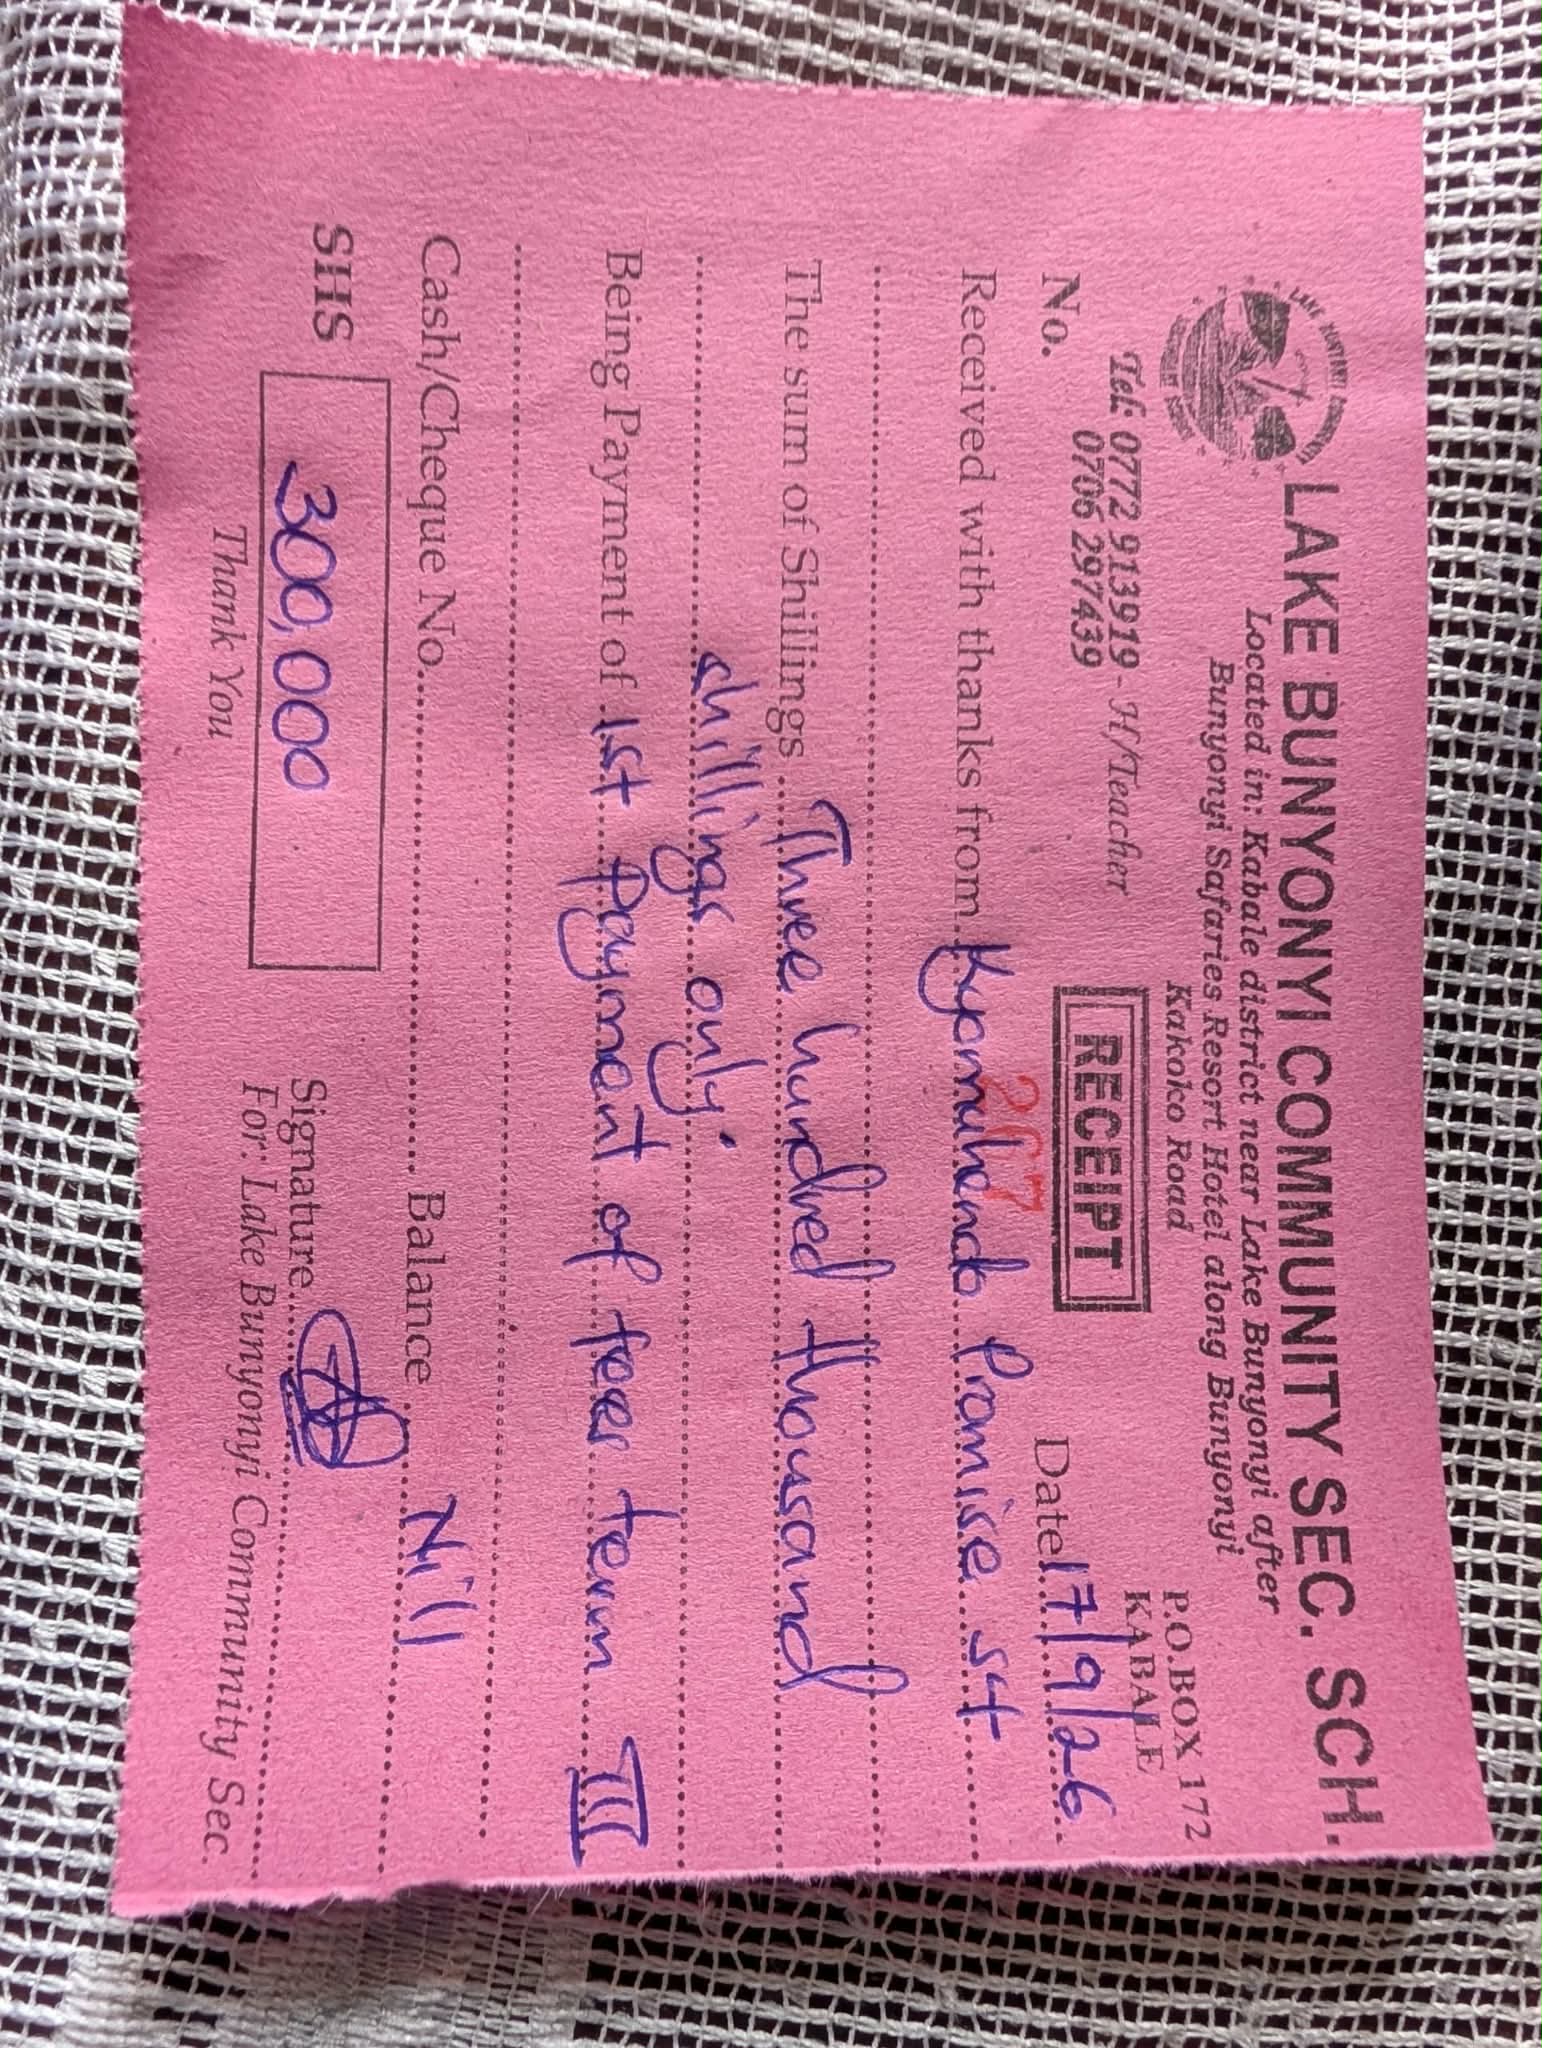 LAKE BUNYONYI COMMUNITY SEC. SCH.
Located in: Kabale district near Lake Bunyonyi after
Bunyonyi Safaries Resort Hotel along Bunyonyi
Kakoko Road
P.O.BOX 172
KABALE
Tel: 0772 913919 - H/Teacher
0706 297439
RECEIPT
No.
267
Date 17/9/26
Received with thanks from Kyomuhendo Promise S4
The sum of Shillings Three hundred thousand
shillings only.
Being Payment of 1st Payment of fees term III
Cash/Cheque No. Balance Nill
SHS 300,000
Signature
Thank You
For: Lake Bunyonyi Community Sec.